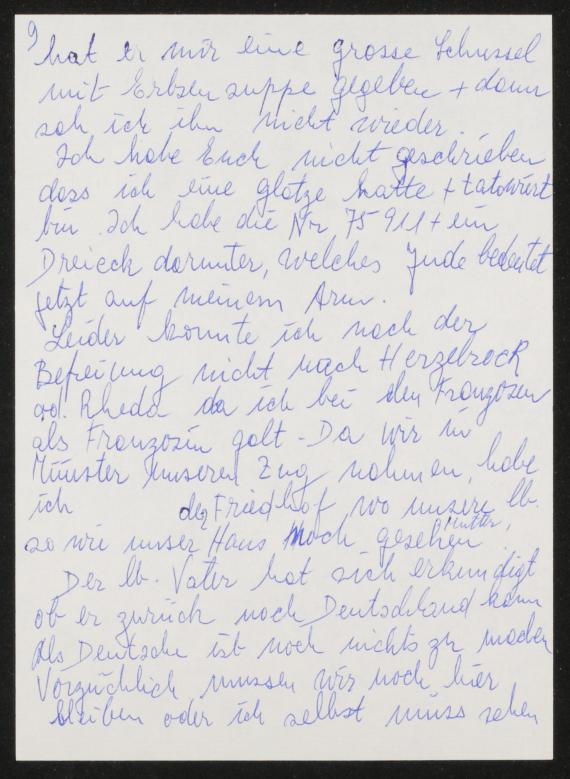 9
hat er mir eine grosse Schussel
mit Erbsensuppe gegeben + dann
sah ich ihn nicht wieder.
Ich habe Euch nicht geschrieben
dass ich eine glatze hatte + tatowiert
bin. Ich habe die Nr 75 911 + ein
Dreieck darunter, welches Jude bedeutet
jetzt auf meinem Arm.
Leider konnte ich nach der
Befreiung nicht nach Herzebrock
od. Rheda da ich bei den Franzosen
als Französin galt - Da wir in
Münster unseren Zug nahmen, habe
ich den Friedhof, wo unsere lb.
Mutter,
so wie unser Haus noch gesehen.
Der lb. Vater hat sich erkundigt
ob er zurück nach Deutschland kann
Als Deutsche ist noch nichts zu machen
Vorzüchlich mussen wir noch hier
bleiben oder ich selbst muss sehen